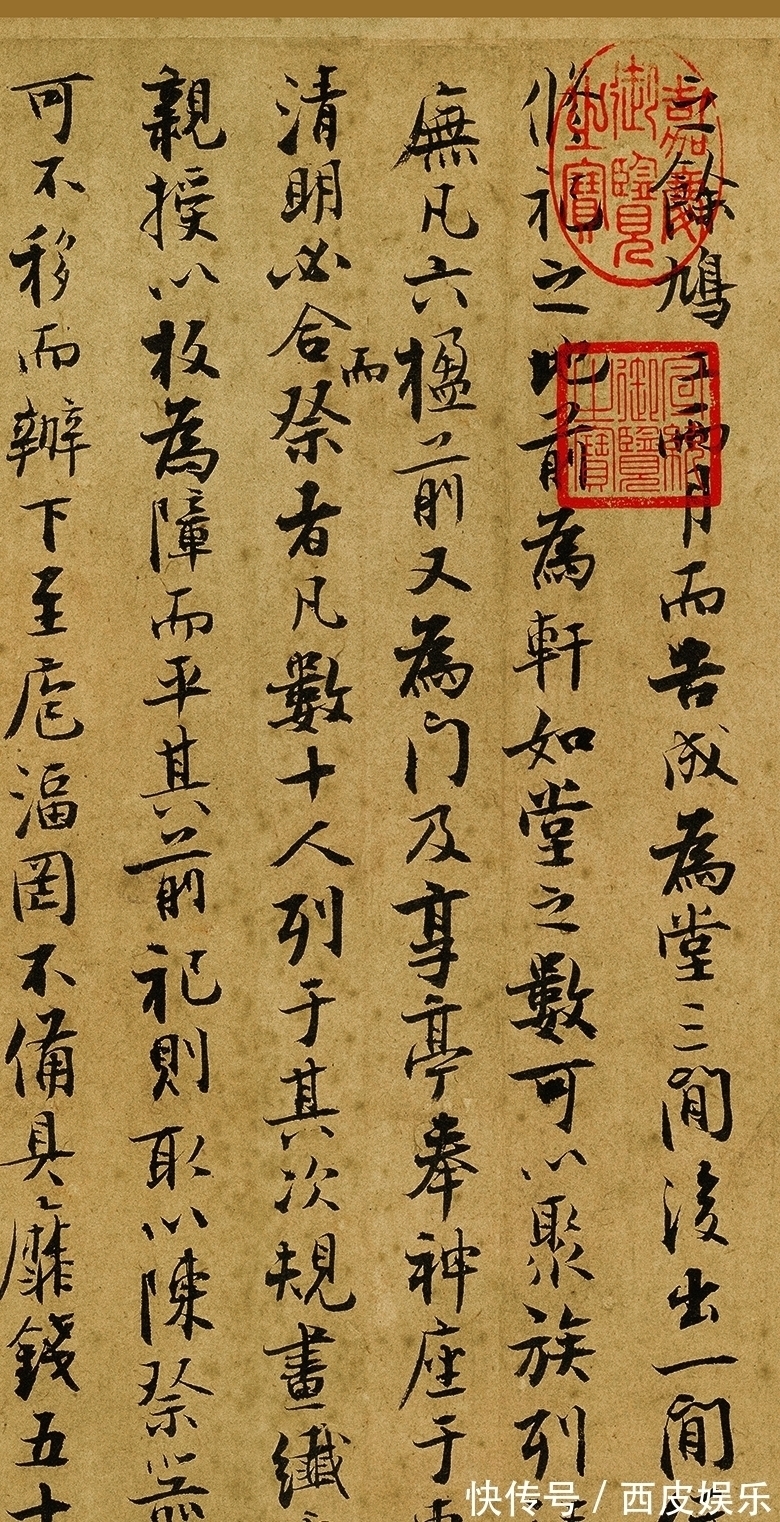 之餘鳩工一兩月而告成為堂三間後出一間
脩祀之地前為軒如堂之數可以聚族列
廡凡六楹前又為門及享亭奉神座于
清明必合祭者凡數十人列于其次規畫纖
而
親授以板為障而平其前祀則取以陳祭前
可不移而辦下至庖湢圊不備具靡錢五十
嘉慶御覽之寶
御覽之寶
快传号 / 西皮娱乐